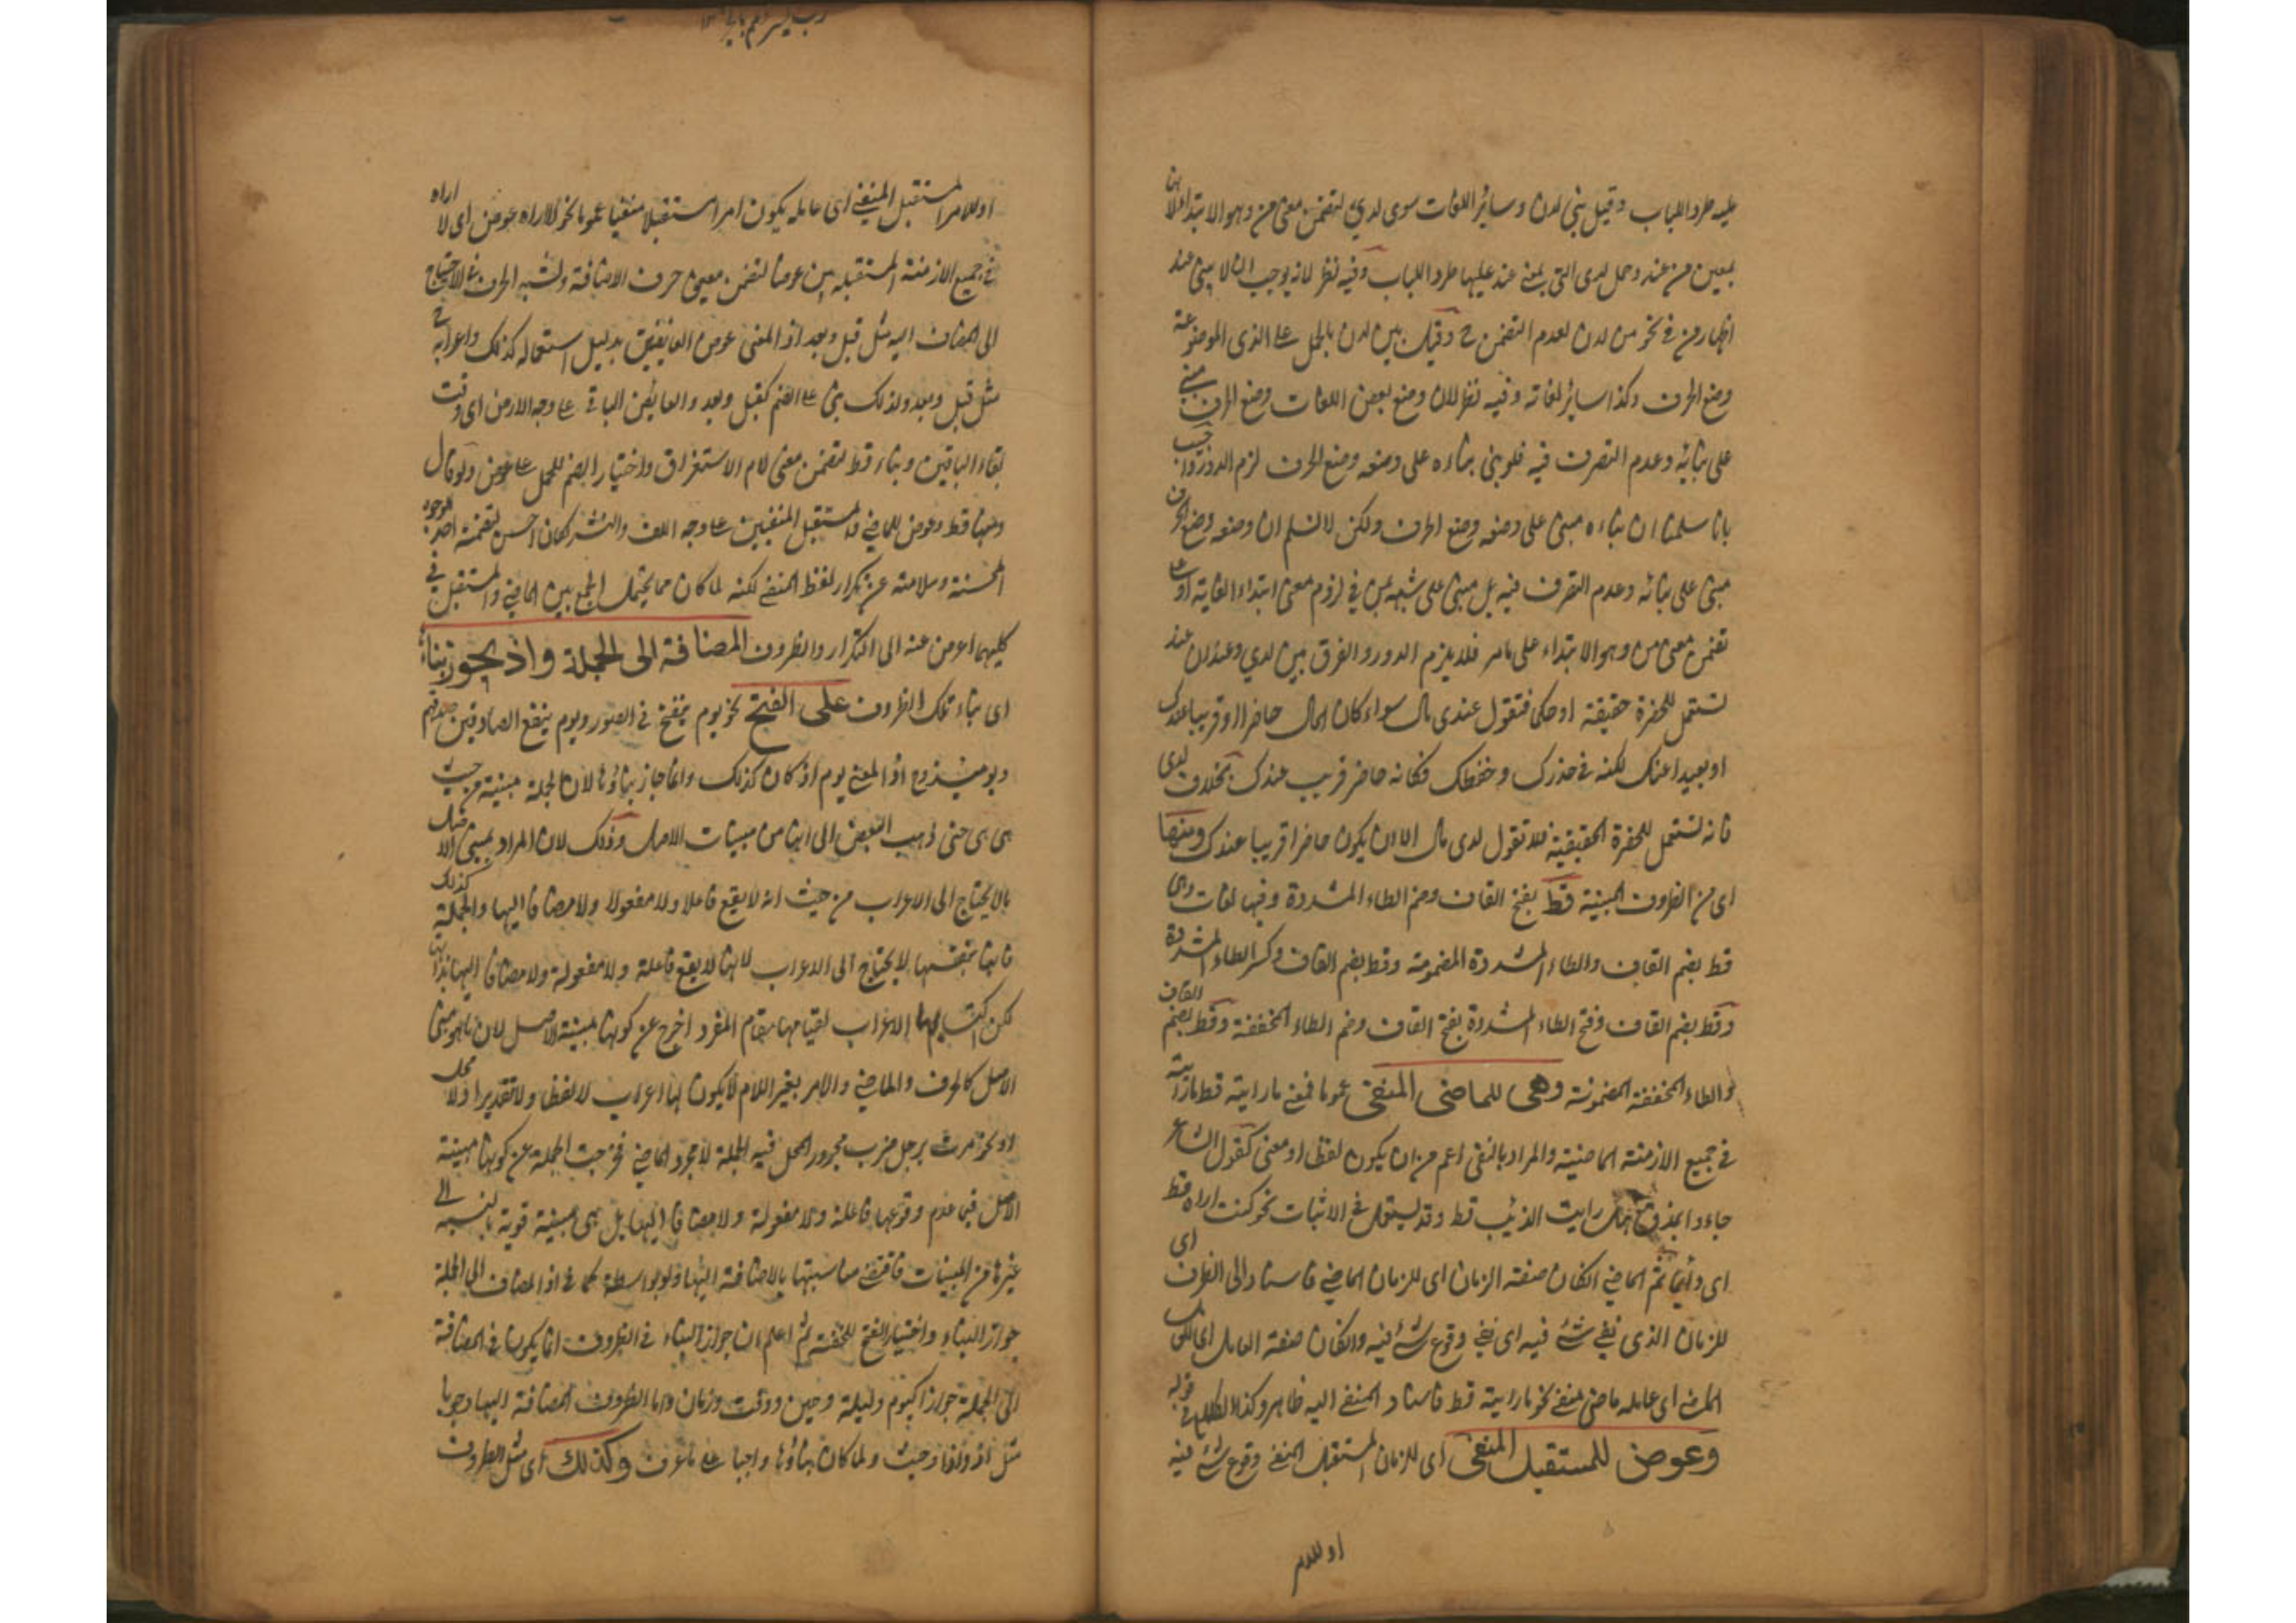 عليه طرد اللباب وقيل بني لدن وسائر اللغات سوى لدي لتضمن معنى من وهو الابتداء لانها
بمعين من عند وحمل لدى التي بمعنى عند عليها طرد اللباب وفيه نظر لانه يوجب ان لا يبنى عند
اظهار من في نحو من لدن لعدم التضمن ح وقيل بين لدن بالحمل على الذى الموضوعة
وضع الحرف وكذا سائر لغاته وفيه نظر لان وضع بعض اللغات وضع الحرف مبني
على بنائه وعدم التصرف فيه فلو بني بناءه على وضعه وضع الحرف لزم الدور واجيب
بانا سلمنا ان بناءه مبني على وضعه وضع الحرف ولكن لا نسلم ان وضعه وضع الحرف
مبنى على بنائه وعدم التصرف فيه بل مبنى على شبهه بمن في لزوم معنى ابتداء الغاية او على
تضمن معنى من وهو الابتداء على مامر فلا يلزم الدور والفرق بين لدي وعند ان عند
تستعمل للحضرة حقيقة او حكما فتقول عندى مال سواء كان المال حاضرا او قريبا عندك
او بعيدا عنك لكنه في حذرك وحفظك فكانه حاضر قريب عندك بخلاف لدى
فانه تستعمل للحضرة الحقيقية فلا تقول لدى مال الا ان يكون حاضرا قريبا عندك ومنها
اى من الظروف المبنية قط بفتح القاف وضم الطاء المشددة وفيها لغات وهي
قط بضم القاف والطاء المشددة المضمومة وقط بضم القاف وكسر الطاء المشددة
وقط بضم القاف وفتح الطاء المشددة بفتح القاف وضم الطاء المخففة وقط بضم القاف
والطاء المخففة المضمومة وهى للماضى المنفى نحو ما فمعنى ما رايته قط ما رايته
في جميع الازمنة الماضية والمراد بالنفى اعم من ان يكون لفظا او معنى كقول الشاعر
جاءوا بمذق هل رايت الذئب قط وقد يستعمل في الاثبات نحو كنت اراه قط
اى دائما ثم الماضي ان كان صفة الزمان اى للزمان الماضي فاسناد الى الظرف اى
للزمان الذى نفى شئ فيه اى نفى وقوع شئ فيه وان كان صفة العامل اى
اى عامله ماضى منفى نحو ما رايته قط فاسناد المنفى اليه ظاهر وكذا الكلام في قوله
وعوض للمستقبل المنفى اى للزمان المستقبل المنفى وقوع شئ فيه
او للامر
او للامر المستقبل المنفى اى عامله يكون امرا مستقبلا منفيا نحو لا اراه عوض اى لا اراه
في جميع الازمنة المستقبلة بين عوض لتضمن معنى حرف الاضافة ولشبه الحرف في الاحتياج
الى المضاف اليه مثل قبل وبعد اذ المعنى عوض العائضين بدليل استعماله كذلك واعرابه ح
مثل قبل وبعد ولذلك بنى على الضم كقبل وبعد والعائض الباقي على وجه الارض اى وقت
بقاء الباقين وبناء قط لتضمن معنى لام الاستغراق واختيار الضم للحمل على عوض ولو قال
ومنها قط وعوض للماضي والمستقبل المنفيين على وجه اللف والنشر لكان احسن لتضمنه الوجوه
المحسنة وسلامته عن تكرار لفظ المنفى لكنه لما كان مما يحتمل الجمع بين الماضي والمستقبل في
كليهما اعرض عنه الى التكرار والظروف المضافة الى الجملة واذ يجوز بناءها
اى بناء تلك الظروف على الفتح نحو يوم ينفخ في الصور ويوم ينفع الصادقين صدقهم
ويومئذ اذ المعنى يوم اذ كان كذلك وانما جاز بناؤها لان الجملة مبنية من حيث
هى هى حتى ذهب البعض الى انها من مبنيات الاصل وذلك لان المراد بمبنى الاصل
مالا يحتاج الى الاعراب من حيث انه لا يقع فاعلا ولا مفعولا ولا مضافا اليها والجملة كذلك
فانها بنفسها لا يحتاج الى الاعراب لانها لا يقع فاعلة ولا مفعولة ولا مضافا اليها بذاتها
لكن اكتسابها الاعراب لقيامها مقام المفرد اخرج عن كونها مبنية الاصل لان ما هو مبنى
الاصل كالحرف والماضي والامر بغير اللام لا يكون لها اعراب لا لفظا ولا تقديرا ولا محلا
او نحو مررت برجل ضرب مجرور المحل فيه الجملة لا مجرد الماضي فخرجت الجملة عن كونها مبنية
الاصل فيها عدم وقوعها فاعلة ولا مفعولة ولا مضافا اليها بل هى مبنية قوية بالنسبة الى
غيرها من المبنيات فاقتضى مناسبتها بالاضافة اليها ولو بواسطة كما في اذ المضاف الى الجملة
جواز البناء واختيار الفتح للخفة ثم اعلم ان جواز البناء في الظروف انما يكون في المضافة
الى الجملة جوازا كيوم وليلة وحين ووقت وزمان واما الظروف المضافة اليها وجوبا
مثل اذ واذا وحيث ولما كان بناؤها واجبا على ما عرفت وكذلك اى مثل الظروف